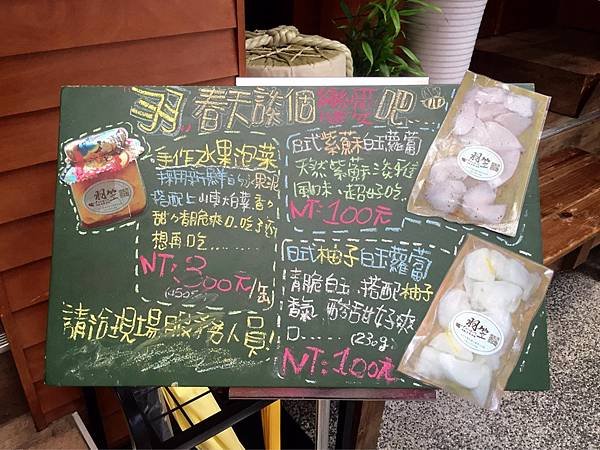 羽、春天談個戀愛吧
手作水果泡菜
採用新鮮白勺水果泥
搭配上山東大白菜香々
甜々香脆爽口.吃了還
想再吃.........
NT:300元/缶
請洽現場服務人員!
日式紫蘇白玉蘿蔔
天然紫蘇淡雅
風味、超好吃..
NT:100元
日式柚子白玉蘿蔔
青脆白玉.搭配柚子
香氣 酸甜好爽
口......(230g)
NT:100元
羽竺
羽竺
羽竺